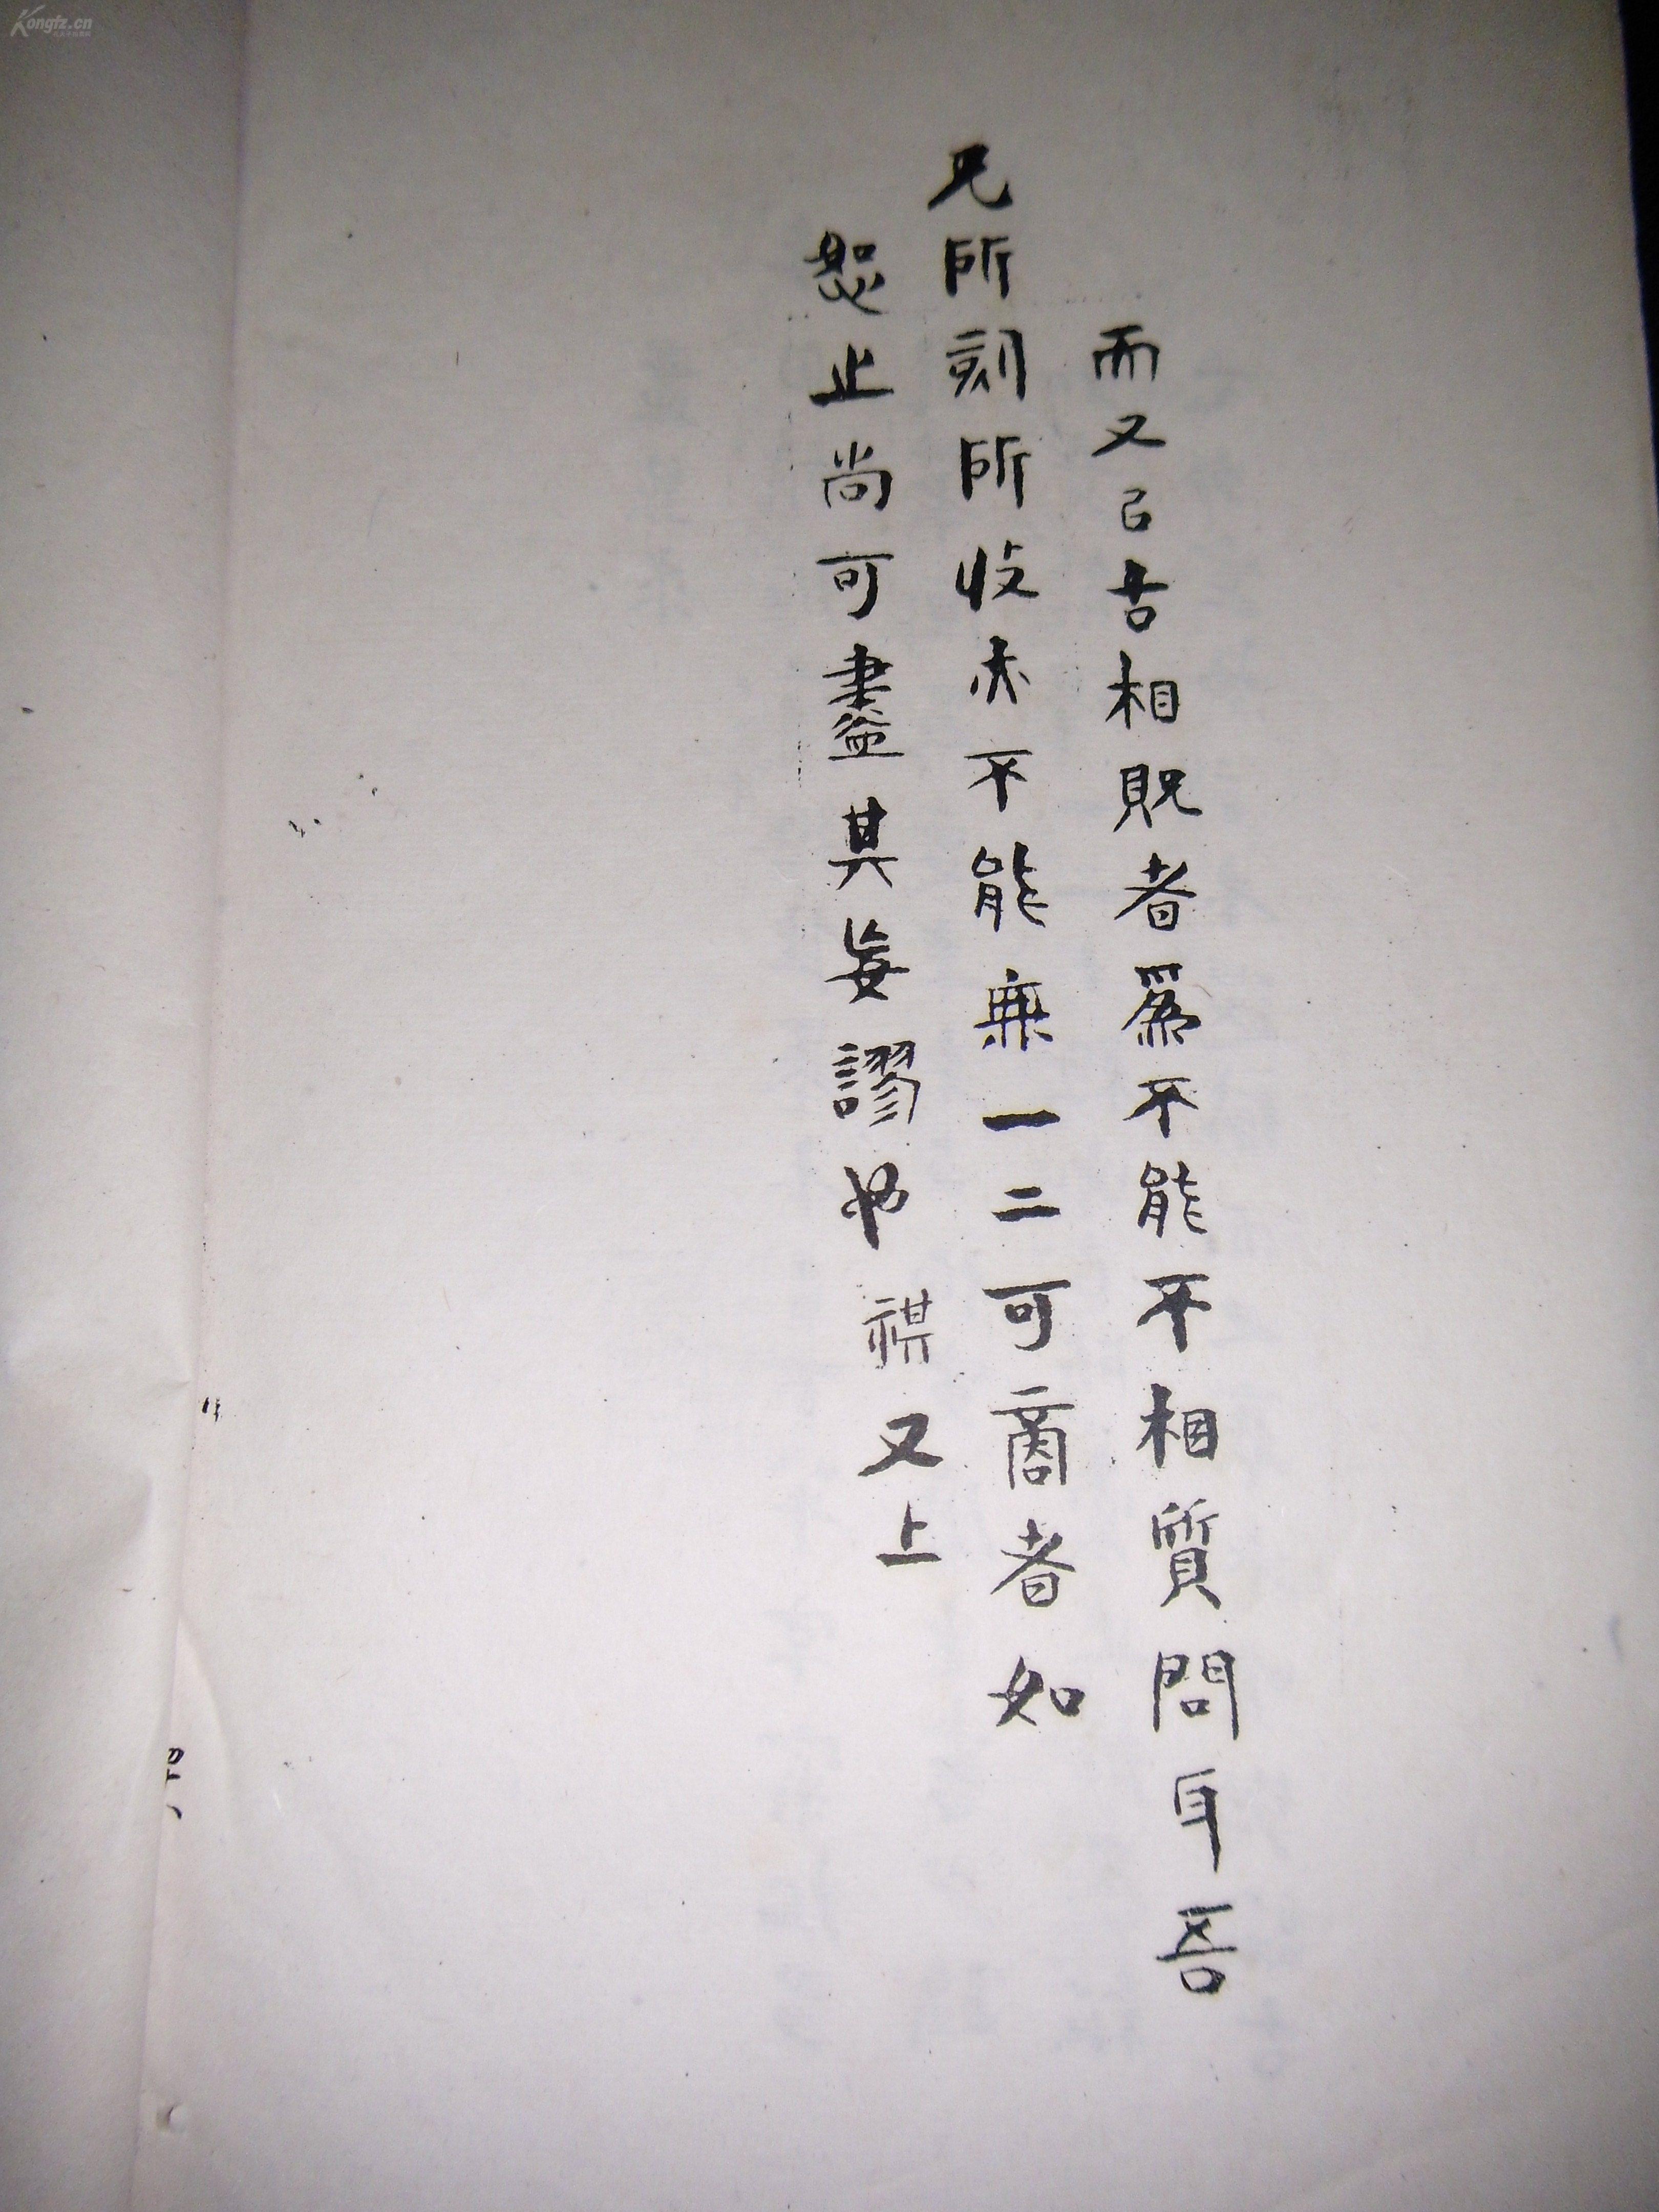 而又己古相貺者爲不能不相質問耳吾
兄所刻所收亦不能無一二可商者如
恕止尚可盡其妄謬也 祺又上
Kongfz.cn